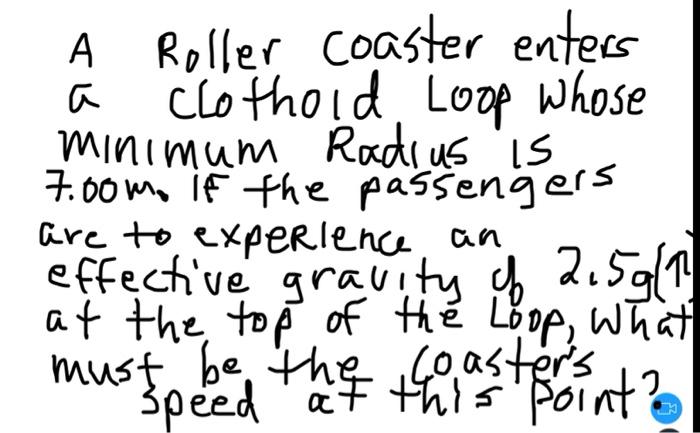 A Roller coaster enters
a clothoid Loop whose
minimum Radius is
7.00m. If the passengers
are to experience an
effective gravity of 2.5g(↑
at the top of the Loop, what
must be the coaster's
speed at this point?